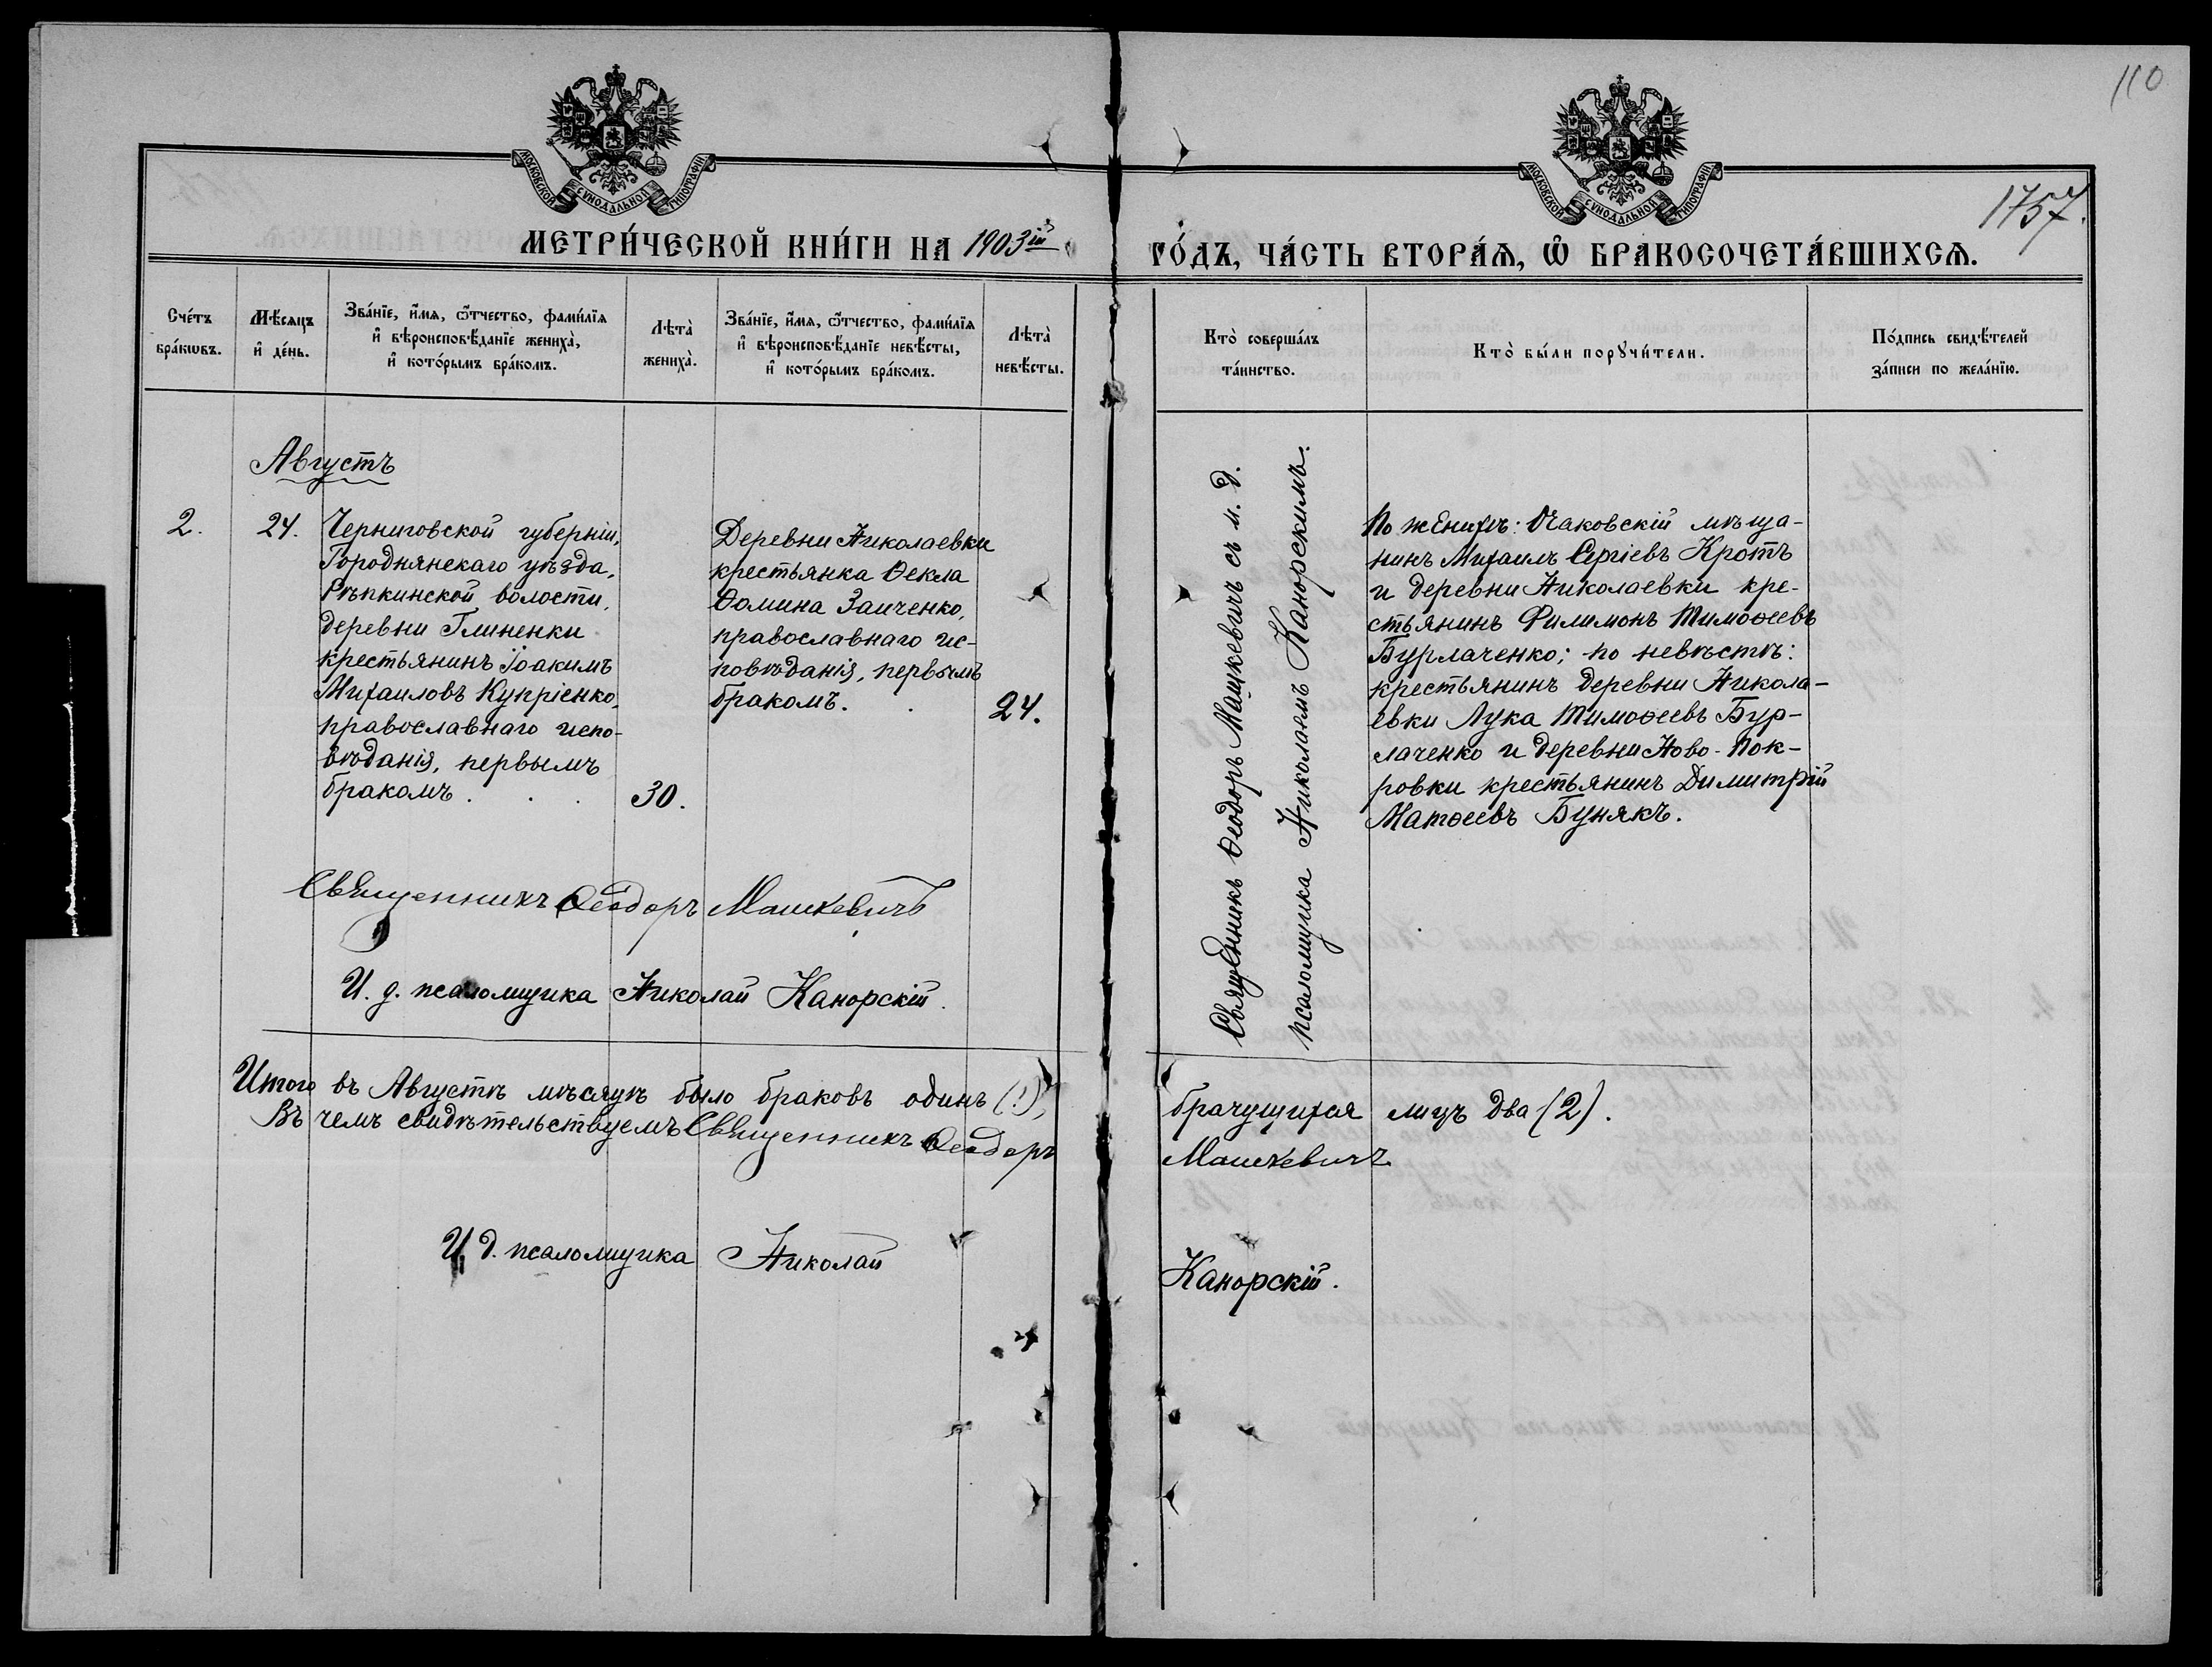 110
МОСКОВСКОЙ СѴНОДАЛЬНОЙ ТИПОГРАФІИ
МОСКОВСКОЙ СѴНОДАЛЬНОЙ ТИПОГРАФІИ
1757.
МЕТРИ́ЧЕСКОЙ КНИ́ГИ НА 1903ій
ГО́ДЪ, ЧА́СТЬ ВТОРА́Ѧ, Ѡ҆ БРАКОСОЧЕТА́ВШИХСѦ.
Сче́тъ бра́кѡвъ.
Мѣ́сяцъ и҆ де́нь.
Зва́нїе, и҆́мѧ, ѻ҆́тчество, фами́лїѧ
и҆ вѣроисповѣ́данїе жениха̀,
и҆ кото́рымъ бра́комъ.
Лѣта̀ жениха̀.
Зва́нїе, и҆́мѧ, ѻ҆́тчество, фами́лїѧ
и҆ вѣроисповѣ́данїе невѣ́сты,
и҆ кото́рымъ бра́комъ.
Лѣта̀ невѣ́сты.
Кто̀ соверша́лъ та́инство.
Кто̀ бы́ли порꙋчи́тели.
По́дпись свидѣ́телей за́писи по жела́нїю.
Августъ
2.
24.
Черниговской губерніи,
Городнянскаго уѣзда,
Рѣпкинской волости,
деревни Глиненки
крестьянинъ Іоакимъ
Михаиловъ Купріенко,
православнаго испо-
вѣданія, первымъ
бракомъ . . .
30.
Деревни Николаевки
крестьянка Ѳекла
Ѳомина Заиченко,
православнаго ис-
повѣданія, первымъ
бракомъ. .
24.
Священникъ Ѳеодоръ Машкевичъ съ и. д.
псаломщика Николаемъ Канорскимъ.
По женихѣ: Очаковскій мѣща-
нинъ Михаилъ Сергіевъ Кротъ
и деревни Николаевки кре-
стьянинъ Филимонъ Тимоѳеевъ
Бурлаченко; по невѣстѣ:
крестьянинъ деревни Никола-
евки Лука Тимоѳеевъ Бур-
лаченко и деревни Ново-Пок-
ровки крестьянинъ Димитрій
Матѳеевъ Бунякъ.
Священникъ Ѳеодоръ Машкевичъ
И. д. псаломщика Николай Канорскій.
Итого въ Августѣ мѣсяцѣ было браковъ одинъ (1), брачущихся лицъ два (2).
Въ чемъ свидѣтельствуемъ Священникъ Ѳеодоръ Машкевичъ
И. д. псаломщика Николай Канорскій.